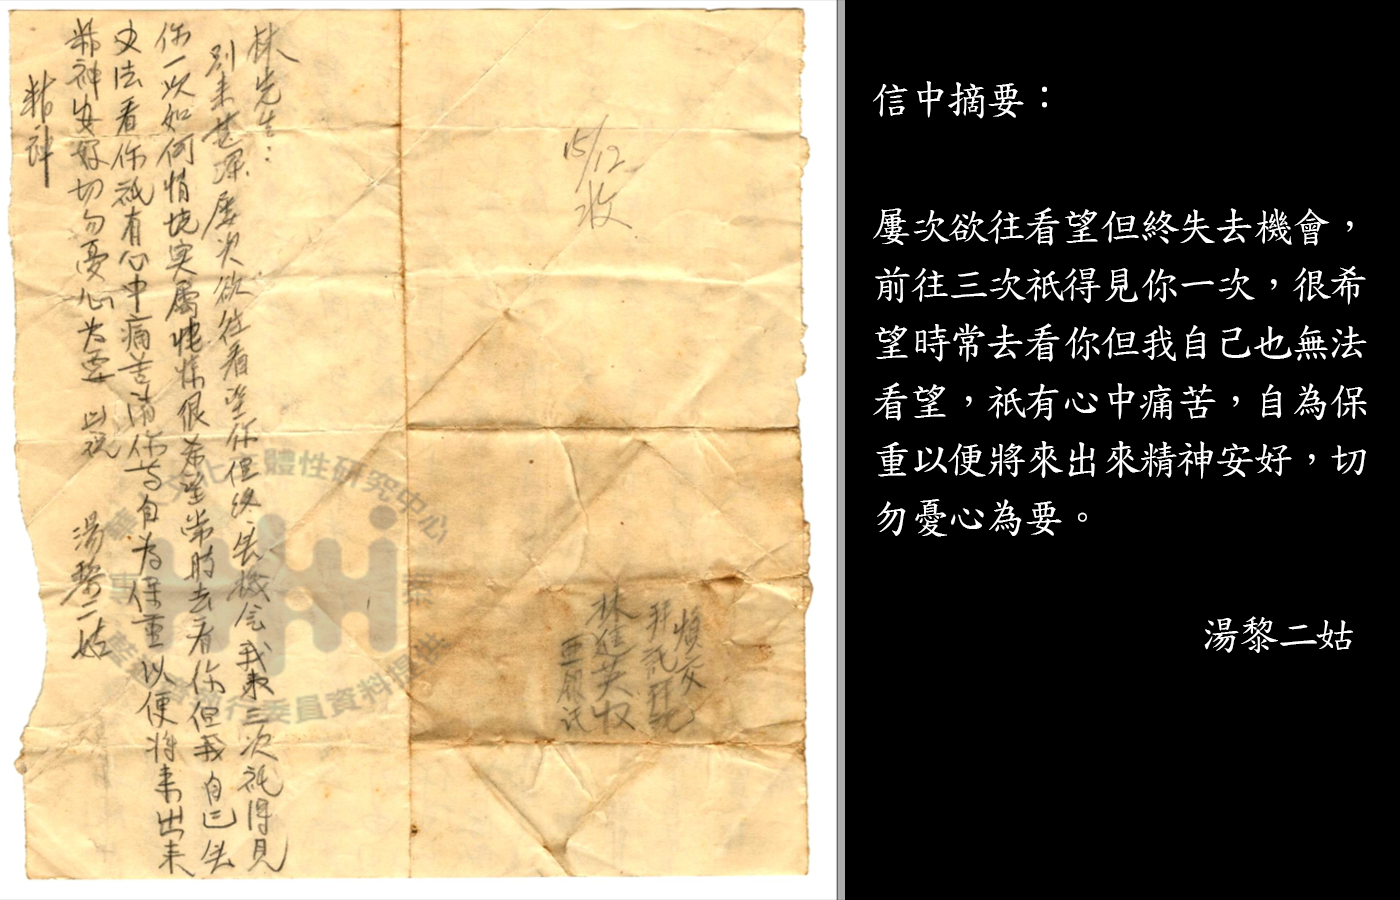 林先生：
別來甚深屢次欲往看望你但終失去機会我來三次祇得見
你一次如何情境实屬悽慘很希望常時去看你但我自己失
文法看你祇有心中痛苦請你萬自为保重以便将来出来
精神安好切勿憂心为要 此祝
精神
湯黎二姑
15/12
收
煩交
拜託拜託
林進英收
亜銀託
華人文化主體性研究中心
執行委員資料提供
信中摘要：
屢次欲往看望但終失去機會，
前往三次祇得見你一次，很希
望時常去看你但我自己也無法
看望，祇有心中痛苦，自為保
重以便將來出來精神安好，切
勿憂心為要。
湯黎二姑